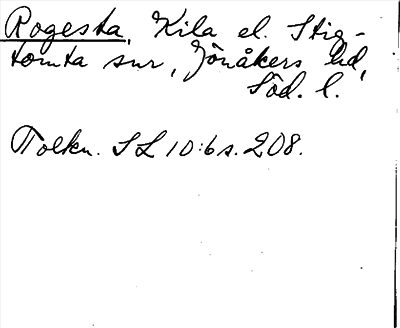 Rogesta, Kila el. Stig-
tomta snr, Jönåkers hd,
Söd. l.
Tolkn. SL 10:6 s. 208.